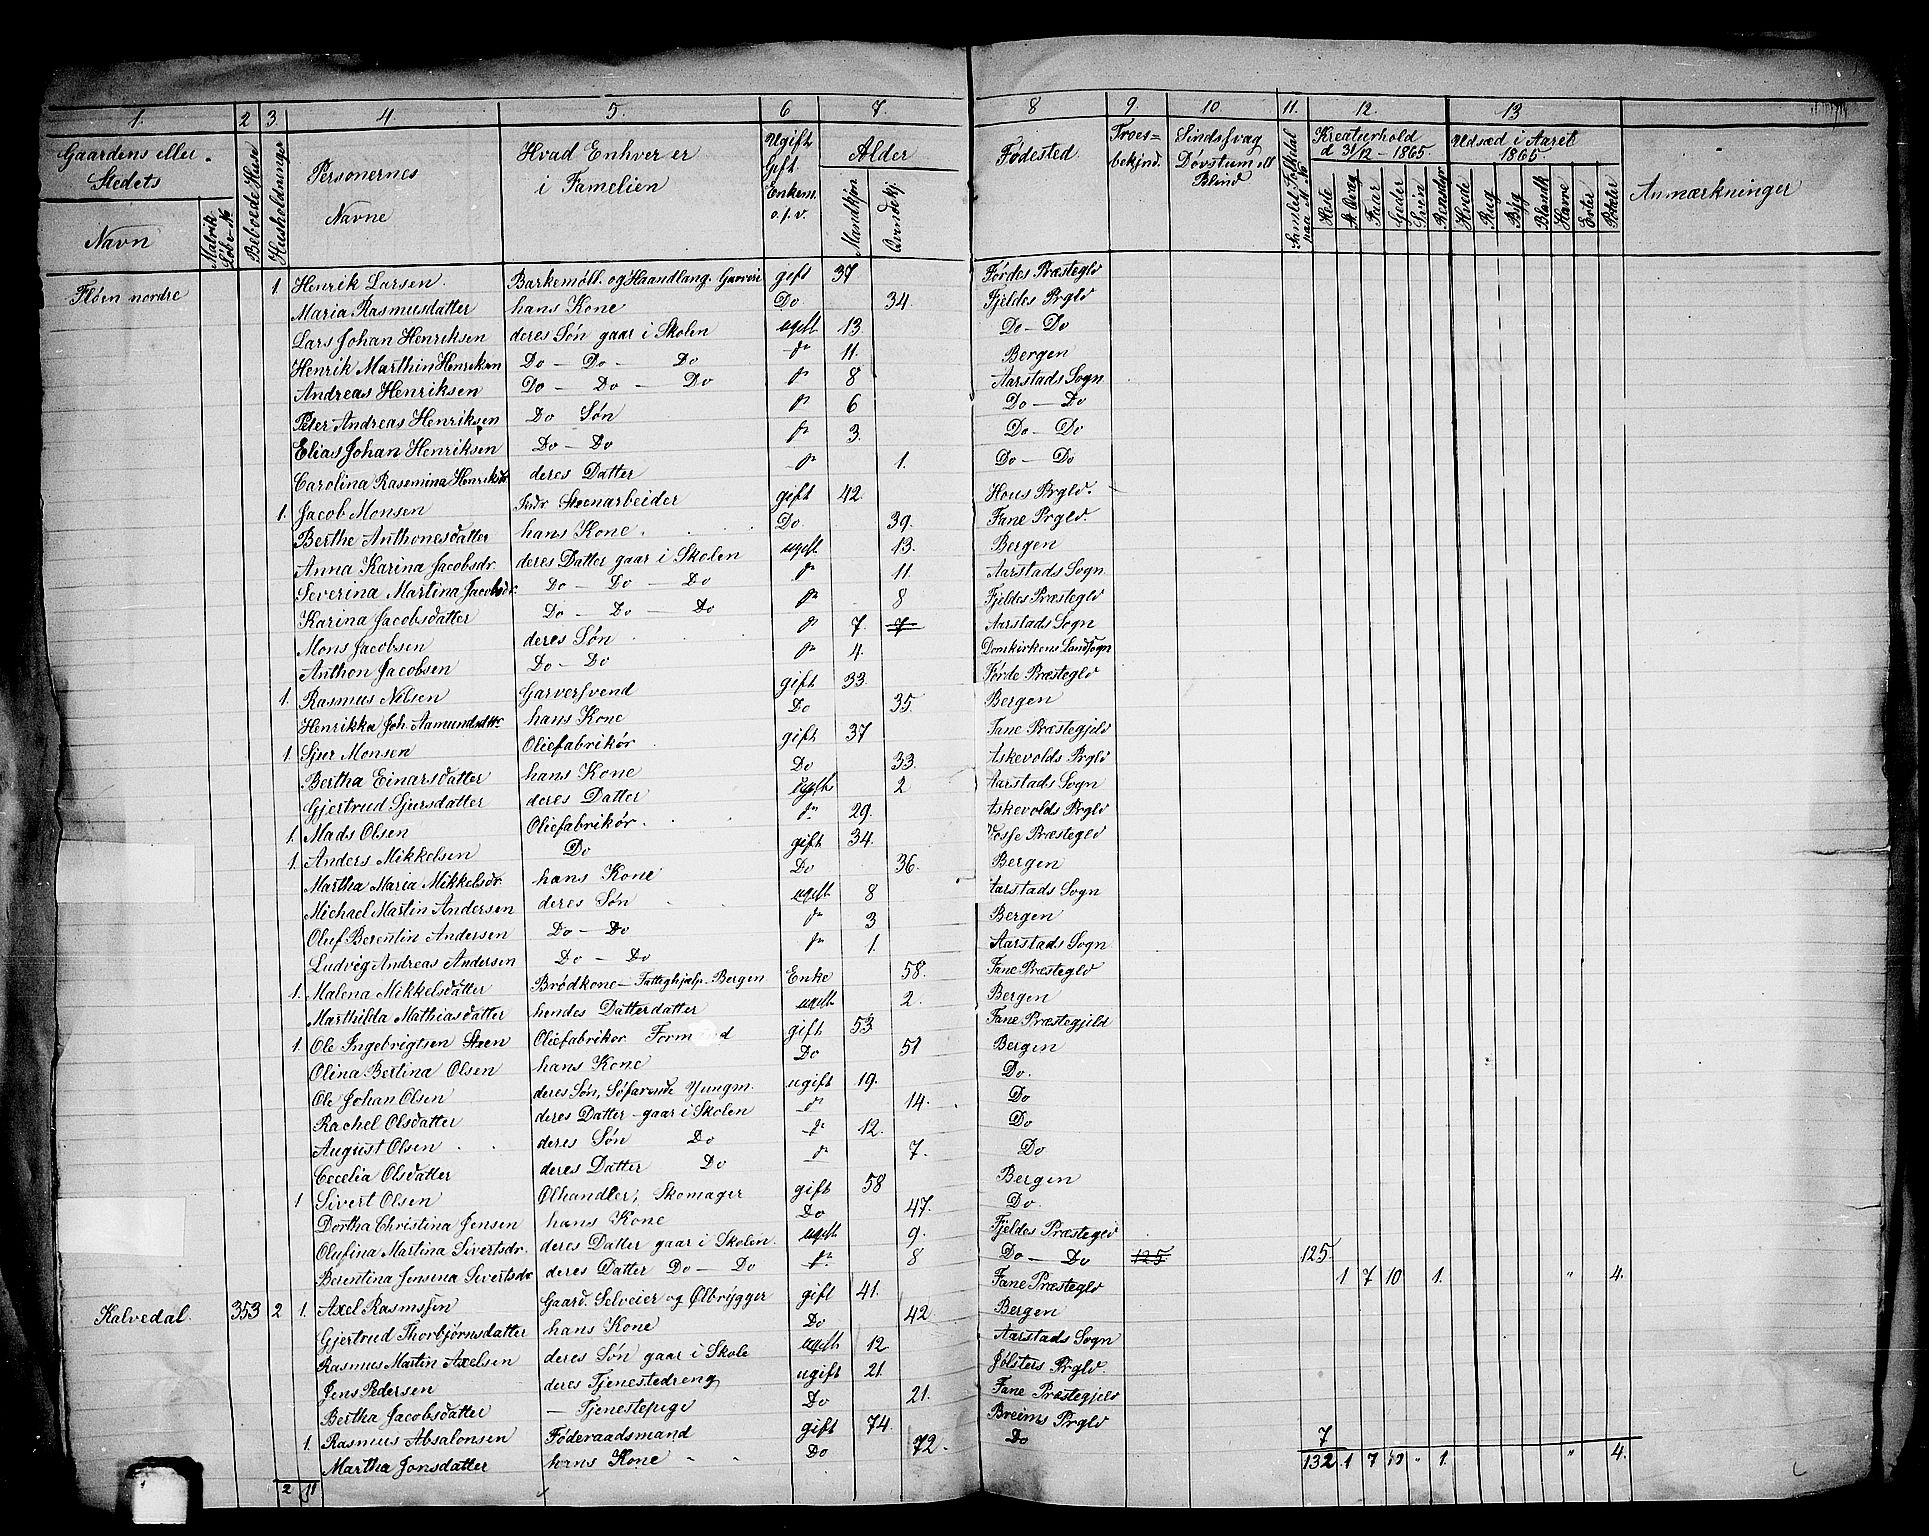 1. 2 3. 4 5. 6 7. 8 9. 10 11. 12. 13
Gaardens eller Stedets
Navn
Matrik. Løbe-No
Beboede Huse
Husholdninger
Personernes Navne
Hvad Enhver er i Familien
Ugift Gift Enkem. o.s.v.
Alder
Mandkjøn
Qvindekj.
Fødested
Troes=bekjend.
Sindssvag Døvstum ell Blind
Samlet Folketal paa M. No
Kreaturhold d 31/12 - 1865.
Heste St. Qvæg Faar Geder Sviin Rensdyr
Udsæd i Aaret 1865.
Hvede Rug Byg Blandk Havre Erter Poteter
Anmærkninger
Fløen nordre 1. Henrik Larsen. Barkemøll. og Haandlang. Garveri gift 37 Førdes Præstegld
Maria Rasmusdatter hans Kone Do 34. Fjeldes Prgld
Lars Johan Henriksen deres Søn gaar i Skolen ugift 13 Do - Do
Henrik Marthin Henriksen Do - Do - Do do 11. Bergen
Andreas Henriksen Do - Do - Do do 8 Aarstads Sogn
Peter Andreas Henriksen Do Søn do 6 Do - Do
Elias Johan Henriksen Do - Do do 3. Do - Do
Carolina Rasemina Henriksdr deres Datter do 1. Do - Do
1. Jacob Monsen Stenarbeider gift 42 Hous Prgld.
Berthe Anthonesdatter hans Kone. Do 39. Fane Prgld.
Anna Karina Jacobsdr. deres Datter gaar i Skolen ugift. 13. Bergen
Severina Martina Jacobsdr. Do - Do - Do do 11. Aarstads Sogn
Karina Jacobsdatter Do - Do - Do do 8 Fjeldes Præstegld
Mons Jacobsen deres Søn do 7. 7 Aarstads Sogn
Anthon Jacobsen Do - Do do 4. Domkirkens Landsogn
1. Rasmus Nilsen Garversvend gift 33. Førde Præstegld
Henrikka Joh. Aamundsdattr hans Kone Do 35. Bergen
1. Sjur Monsen Oliefabrikør gift 37 Fane Præstegjeld
Bertha Einarsdatter hans Kone Do 33. Askevolds Prgld
Gjertrud Sjursdatter deres Datter ugift 2 Aarstads Sogn
1. Mads Olsen Oliefabrikør. do 29. Askevolds Prgld
1. Anders Mikkelsen Do gift 34. Vosse Præstegld
Martha Maria Mikkelsdr. hans Kone Do 36. Bergen
Michael Martin Andersen deres Søn ugift 8 Aarstads Sogn
Oluf Berentin Andersen Do - Do do 3 Bergen
Ludvig Andreas Andersen Do - Do do 1. Aarstads Sogn
1. Malena Mikkelsdatter Brødkone - Fattighjælp - Bergen Enke 58. Fane Præstegld
Marthilda Mathiasdatter hendes Datterdatter ugift 2. Bergen
1. Ole Ingebrigtsen Steen Oliefabrikør Form d gift 53 Fane Præstegjeld
Olina Bertina Olsen hans Kone Do 51 Bergen
Ole Johan Olsen deres Søn, Søfarende Yungm. ugift 19. Do.
Rachel Olsdatter deres Datter - gaar i Skolen do 14. Do
August Olsen deres Søn Do do 12. Do
Cecelia Olsdatter deres Datter Do do 7. Do
1 Sivert Olsen Ølhandler, Skomager gift 58 Bergen
Dortha Christina Jensen hans Kone Do 47. Do.
Olufina Martina Sivertsdr. deres Datter gaar i Skolen. ugift 9. Fjeldes Præstegld
Berentina Jensena Sivertsdr deres Datter Do - Do do 8 Do - Do 125 125
Kalvedal. 353 2 1. Axel Rasmssen Gaard. Selveier og Ølbrygger gift 41. Fane Præstegld 1 7 10 1. " 4.
Gjertrud Thorbjørnsdatter hans Kone Do 42 Bergen
Rasmus Martin Axelsen deres Søn gaar i Skole ugift 12 Aarstads Sogn
Jens Pedersen deres Tjenestedreng ugift 21. Jølsters Prgld.
Bertha Jacobsdatter - Tjenestepige Do 21. Fane Præstegjeld
1. Rasmus Absalonsen Føderaadsmand gift 74 Breims Prgld 7
Martha Jonsdatter hans Kone Do 72. Do 132 1 7 10 " 1. " 4.
2 11